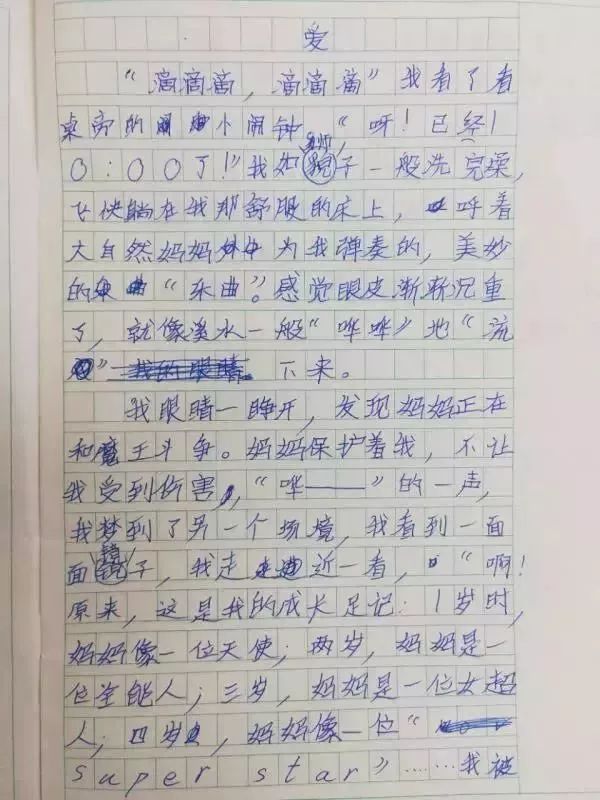 爱
“滴滴滴，滴滴滴”我看了看
桌旁的小闹钟，“呀！已经1
0:00了！”我如 子一般洗完澡，
飞快躺在我那舒服的床上，呼着
大自然妈妈为我弹奏的，美妙
的“乐曲”。感觉眼皮渐渐沉重
了，就像溪水一般“哗哗”地“流
”下来。
我眼睛一睁开，发现妈妈正在
和魔王斗争。妈妈保护着我，不让
我受到伤害，“哗——”的一声，
我梦到了另一个场境，我看到一面
面镜子，我走近一看，“啊！
原来，这是我的成长足记：1岁时，
妈妈像一位天使；两岁，妈妈是一
位全能人；三岁，妈妈是一位女超
人；四岁，妈妈像一位“
super star”……我被